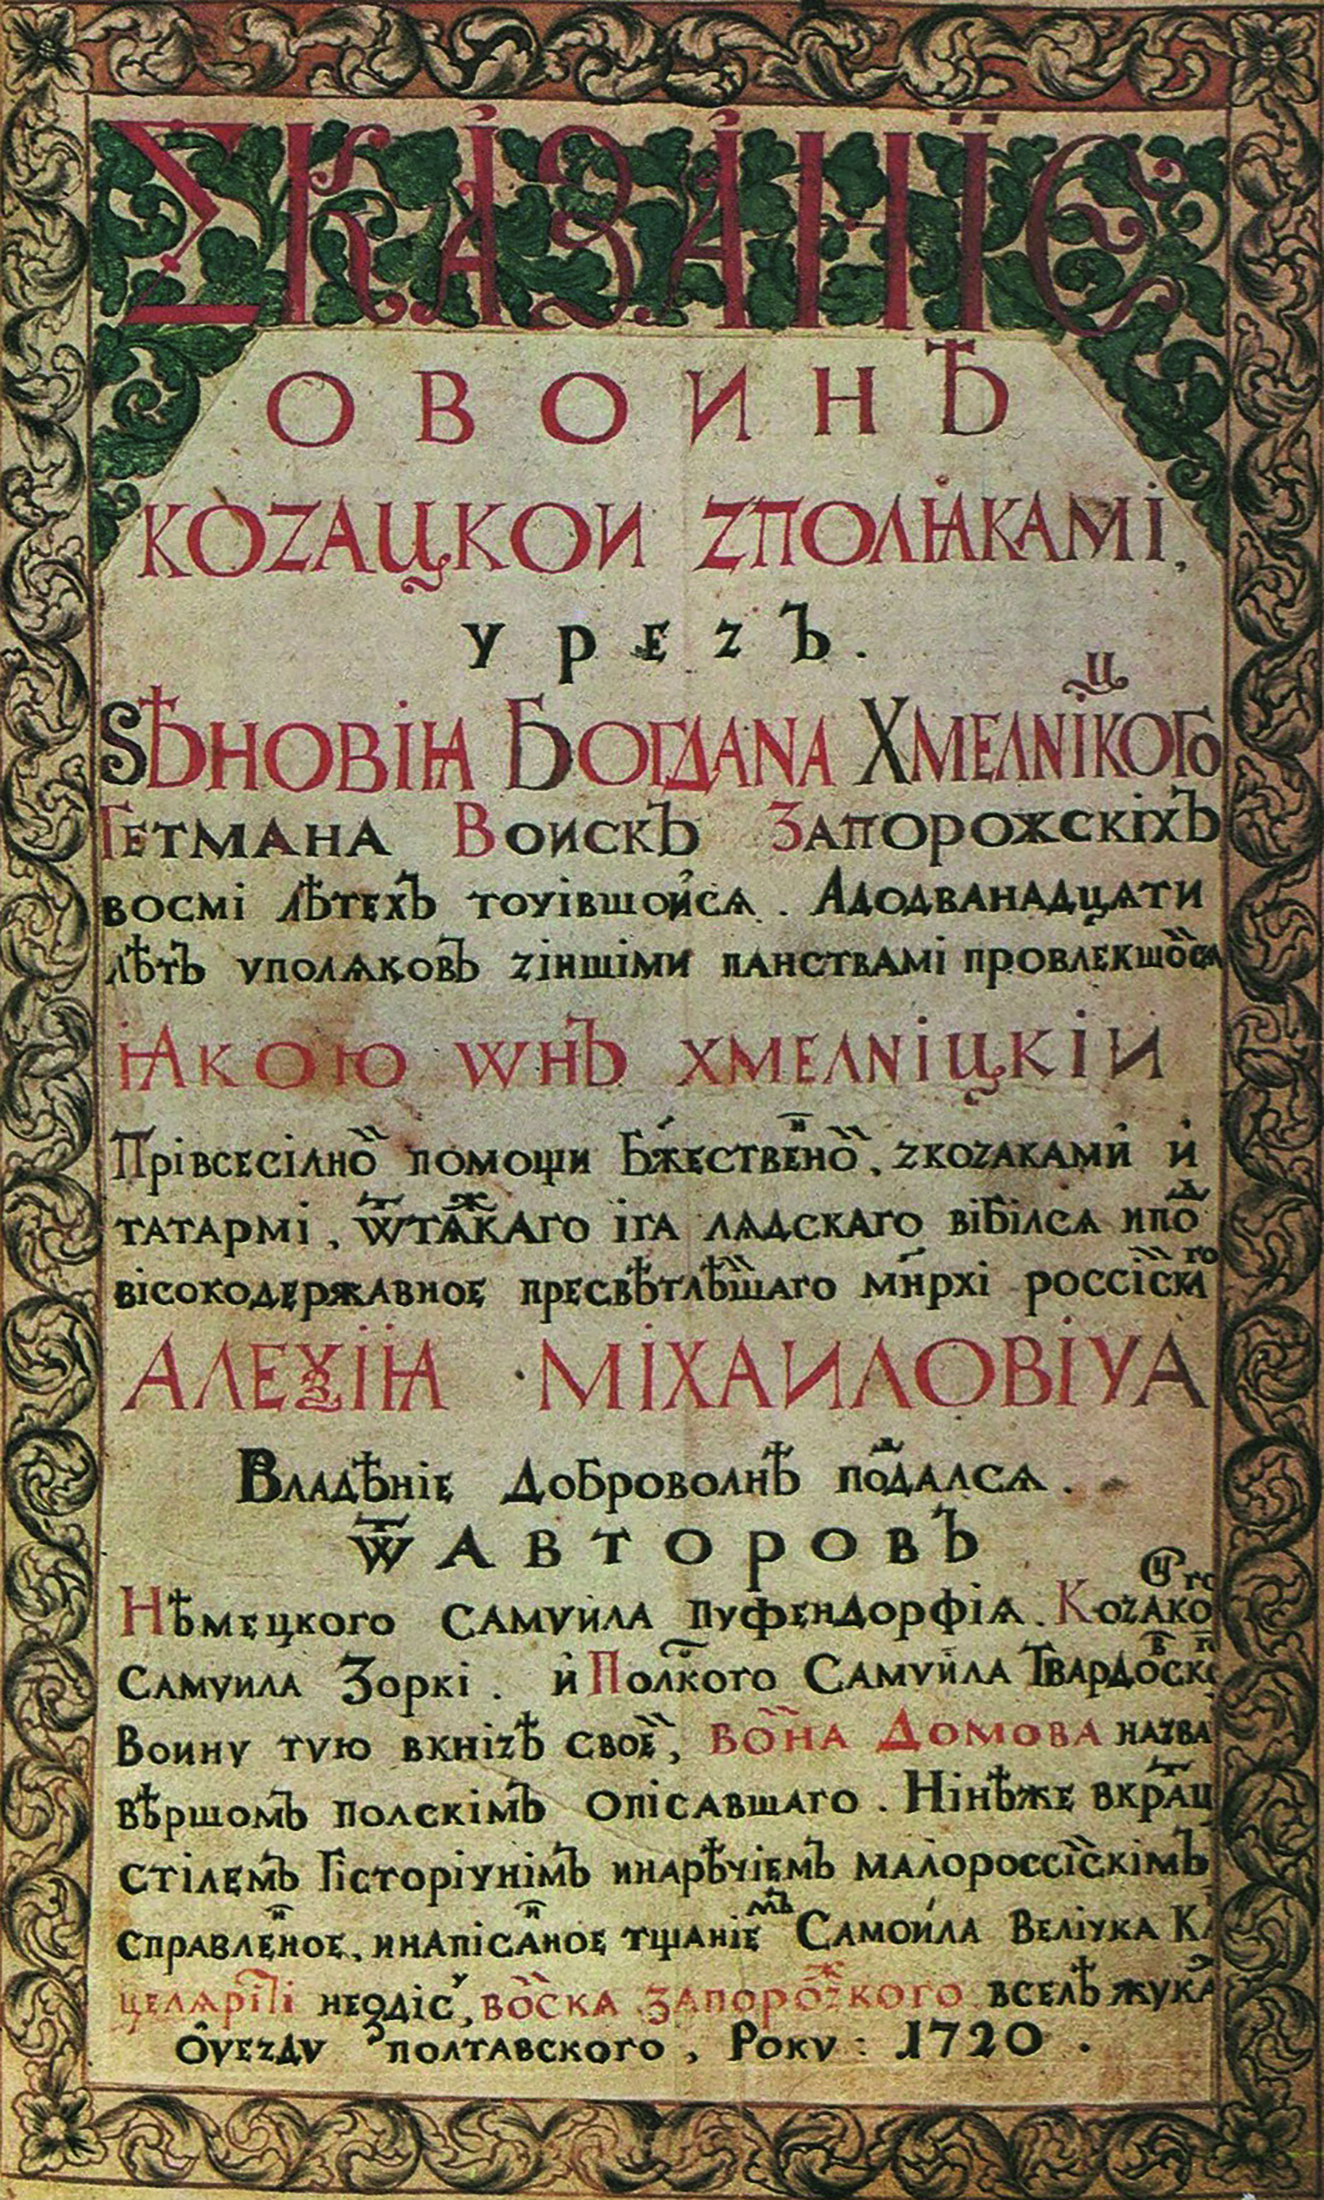 СКАЗАНІЕ
О ВОИНѢ
КОZАЦКОИ ZПОЛꙖКАМІ,
чреzъ.
ЅѢНОВІꙖ БОГДАНА ХМЕЛНІЦКОГО
Гетмана Воискъ Запорожскіхъ
восмі лѣтехъ точівшойся. Адодванадцяти
лѣтъ уполяковъ zіншіми панствамі провлекшойся
ꙖКОЮ ѠНЪ ХМЕЛНІЦКІИ
Прівсесілной помощи Бжественной, zкоzаками и
татармі, ѿтяжкаго іга лядскаго вібілся ипод
вісокодержавное пресвѣтлѣйшаго мнрхі россійскаго
АЛЕѮІꙖ МІХАИЛОВІЧА
Владѣніе Доброволнѣ поддался.
ѿ Авторовъ
Нѣмецкого Самуила Пуфендорфія. Коzацкого
Самуила Зоркі. и Полского Самуила Твардовского
Воину тую вкніzѣ своей, Война Домова наzва
вѣршомъ полскімъ опісавшаго. Нінѣже вкратц
стілемъ Гісторічнімъ инарѣчіемъ малороссійскімъ
справленное, инапісанное тщаніемъ Самоила Велічка К
целяріи неgдісь, войска запорожкого вселѣ жука
Оуеzду полтавского, Року: 1720.